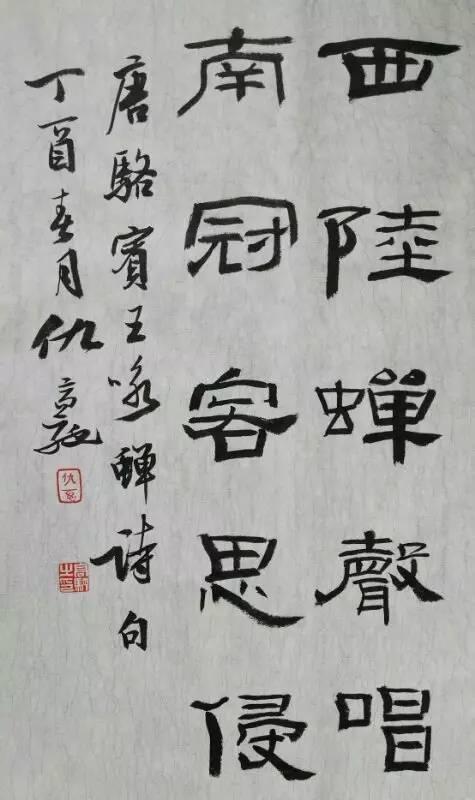 西陸蟬聲唱
南冠客思侵
唐駱賓王咏蟬詩句
丁酉春月仇高馳